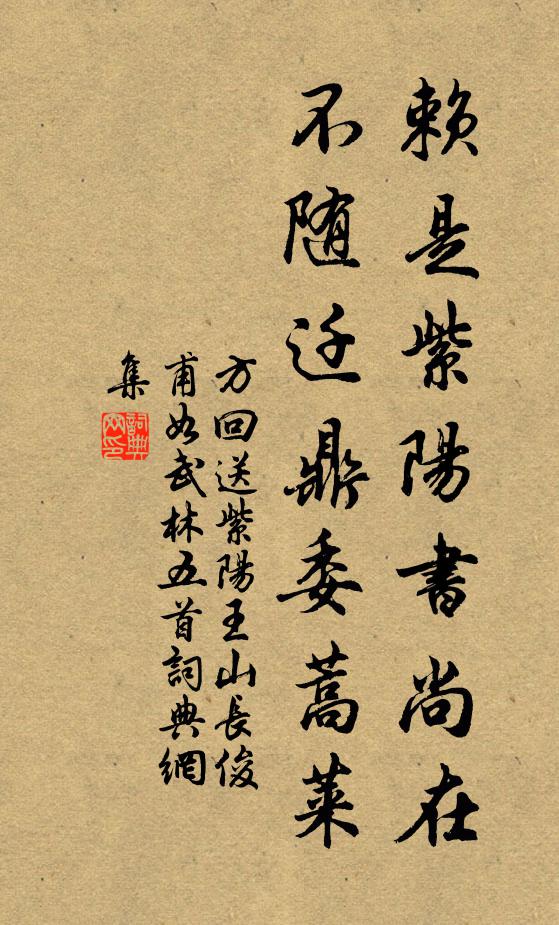 賴是紫陽書尚在
不随迁鼎委蒿莱
方回送紫陽王山長俊
甫如武林五首詞典網
集
詞典网印